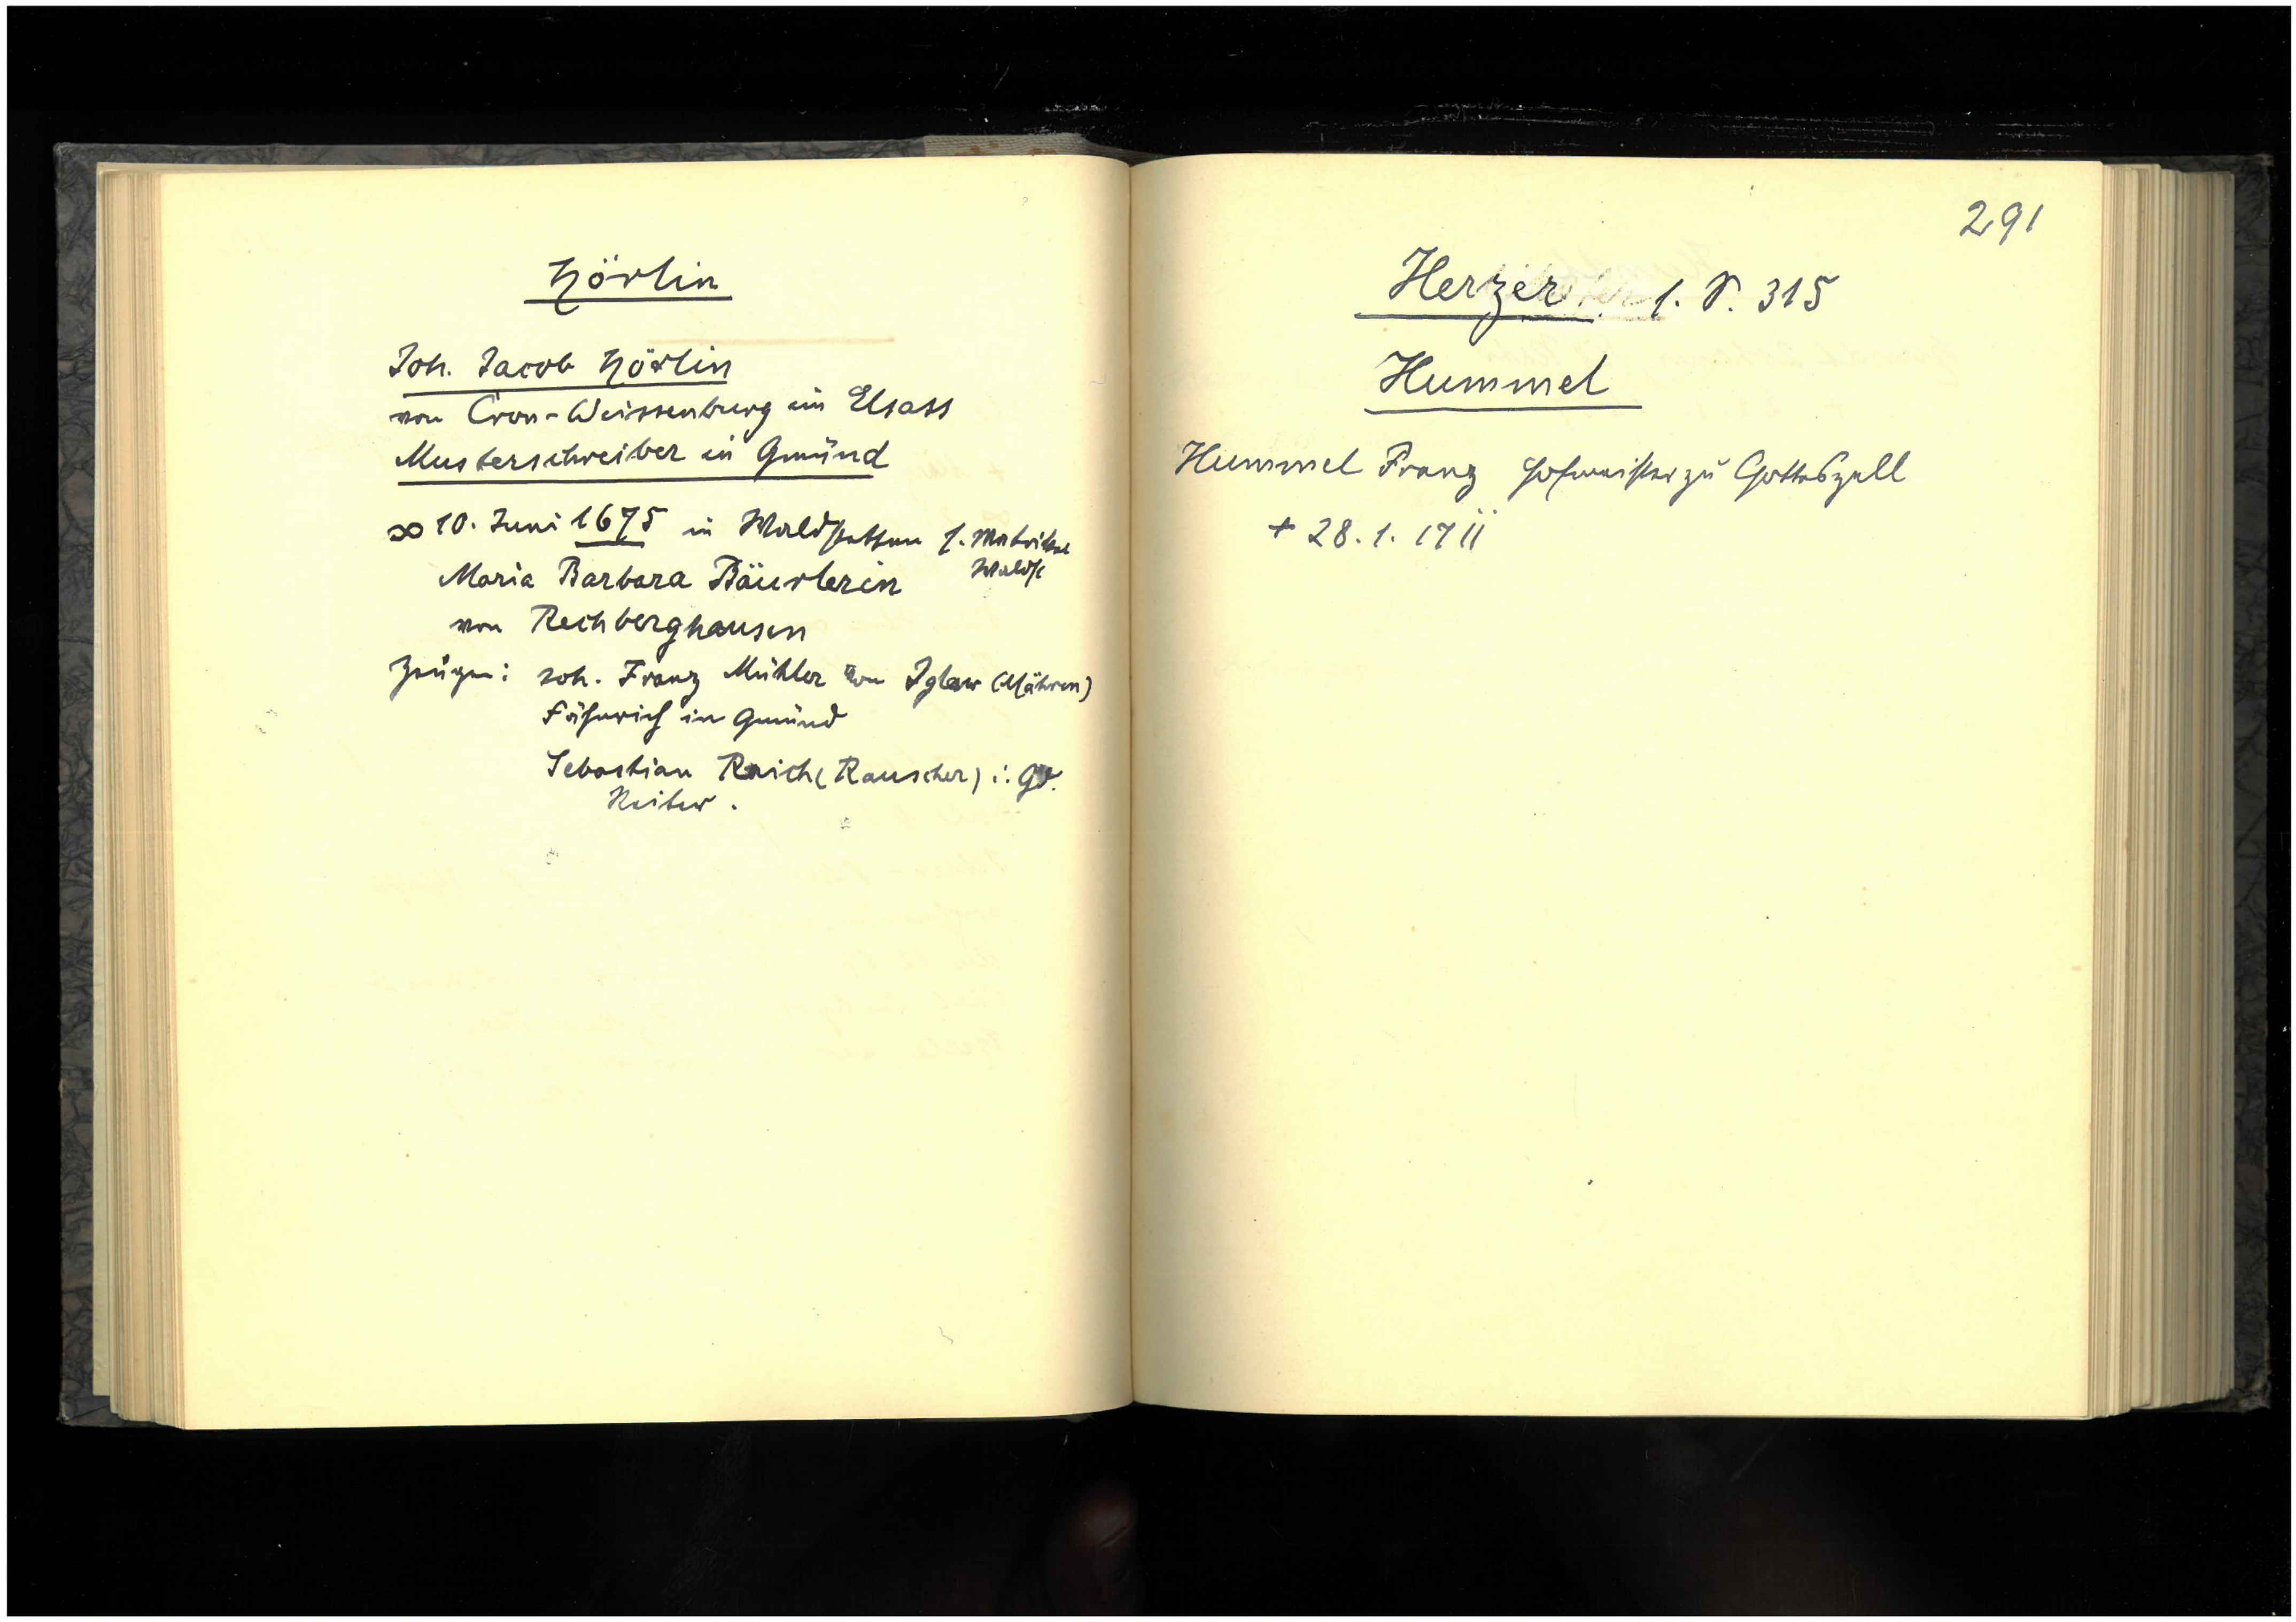 Hörlin
Joh. Jacob Hörlin
von Cron-Weissenburg im Elsass
Musterschreiber in Gmünd
∞ 10. Juni 1675 in Waldstetten s. Matrikel
Waldst
Maria Barbara Bäurlerin
von Rechberghausen
Zeugen: Joh. Franz Mühler von Iglaw (Mähren)
Fähnrich in Gmünd
Sebastian Raich (Rauscher) i. Gd.
Reiter.
291
Herzer s. S. 315
Hummel
Hummel Franz Hofmeister zu Gotteszell
+ 28. 1. 1711